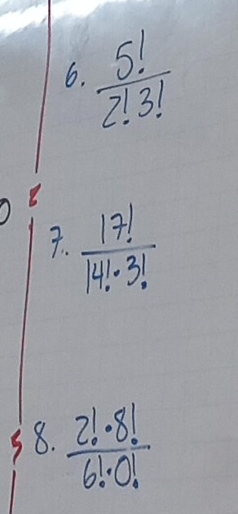 6. 5!
2! 3!
7. 17!
14!·3!
8. 2!·8!
6!·0!